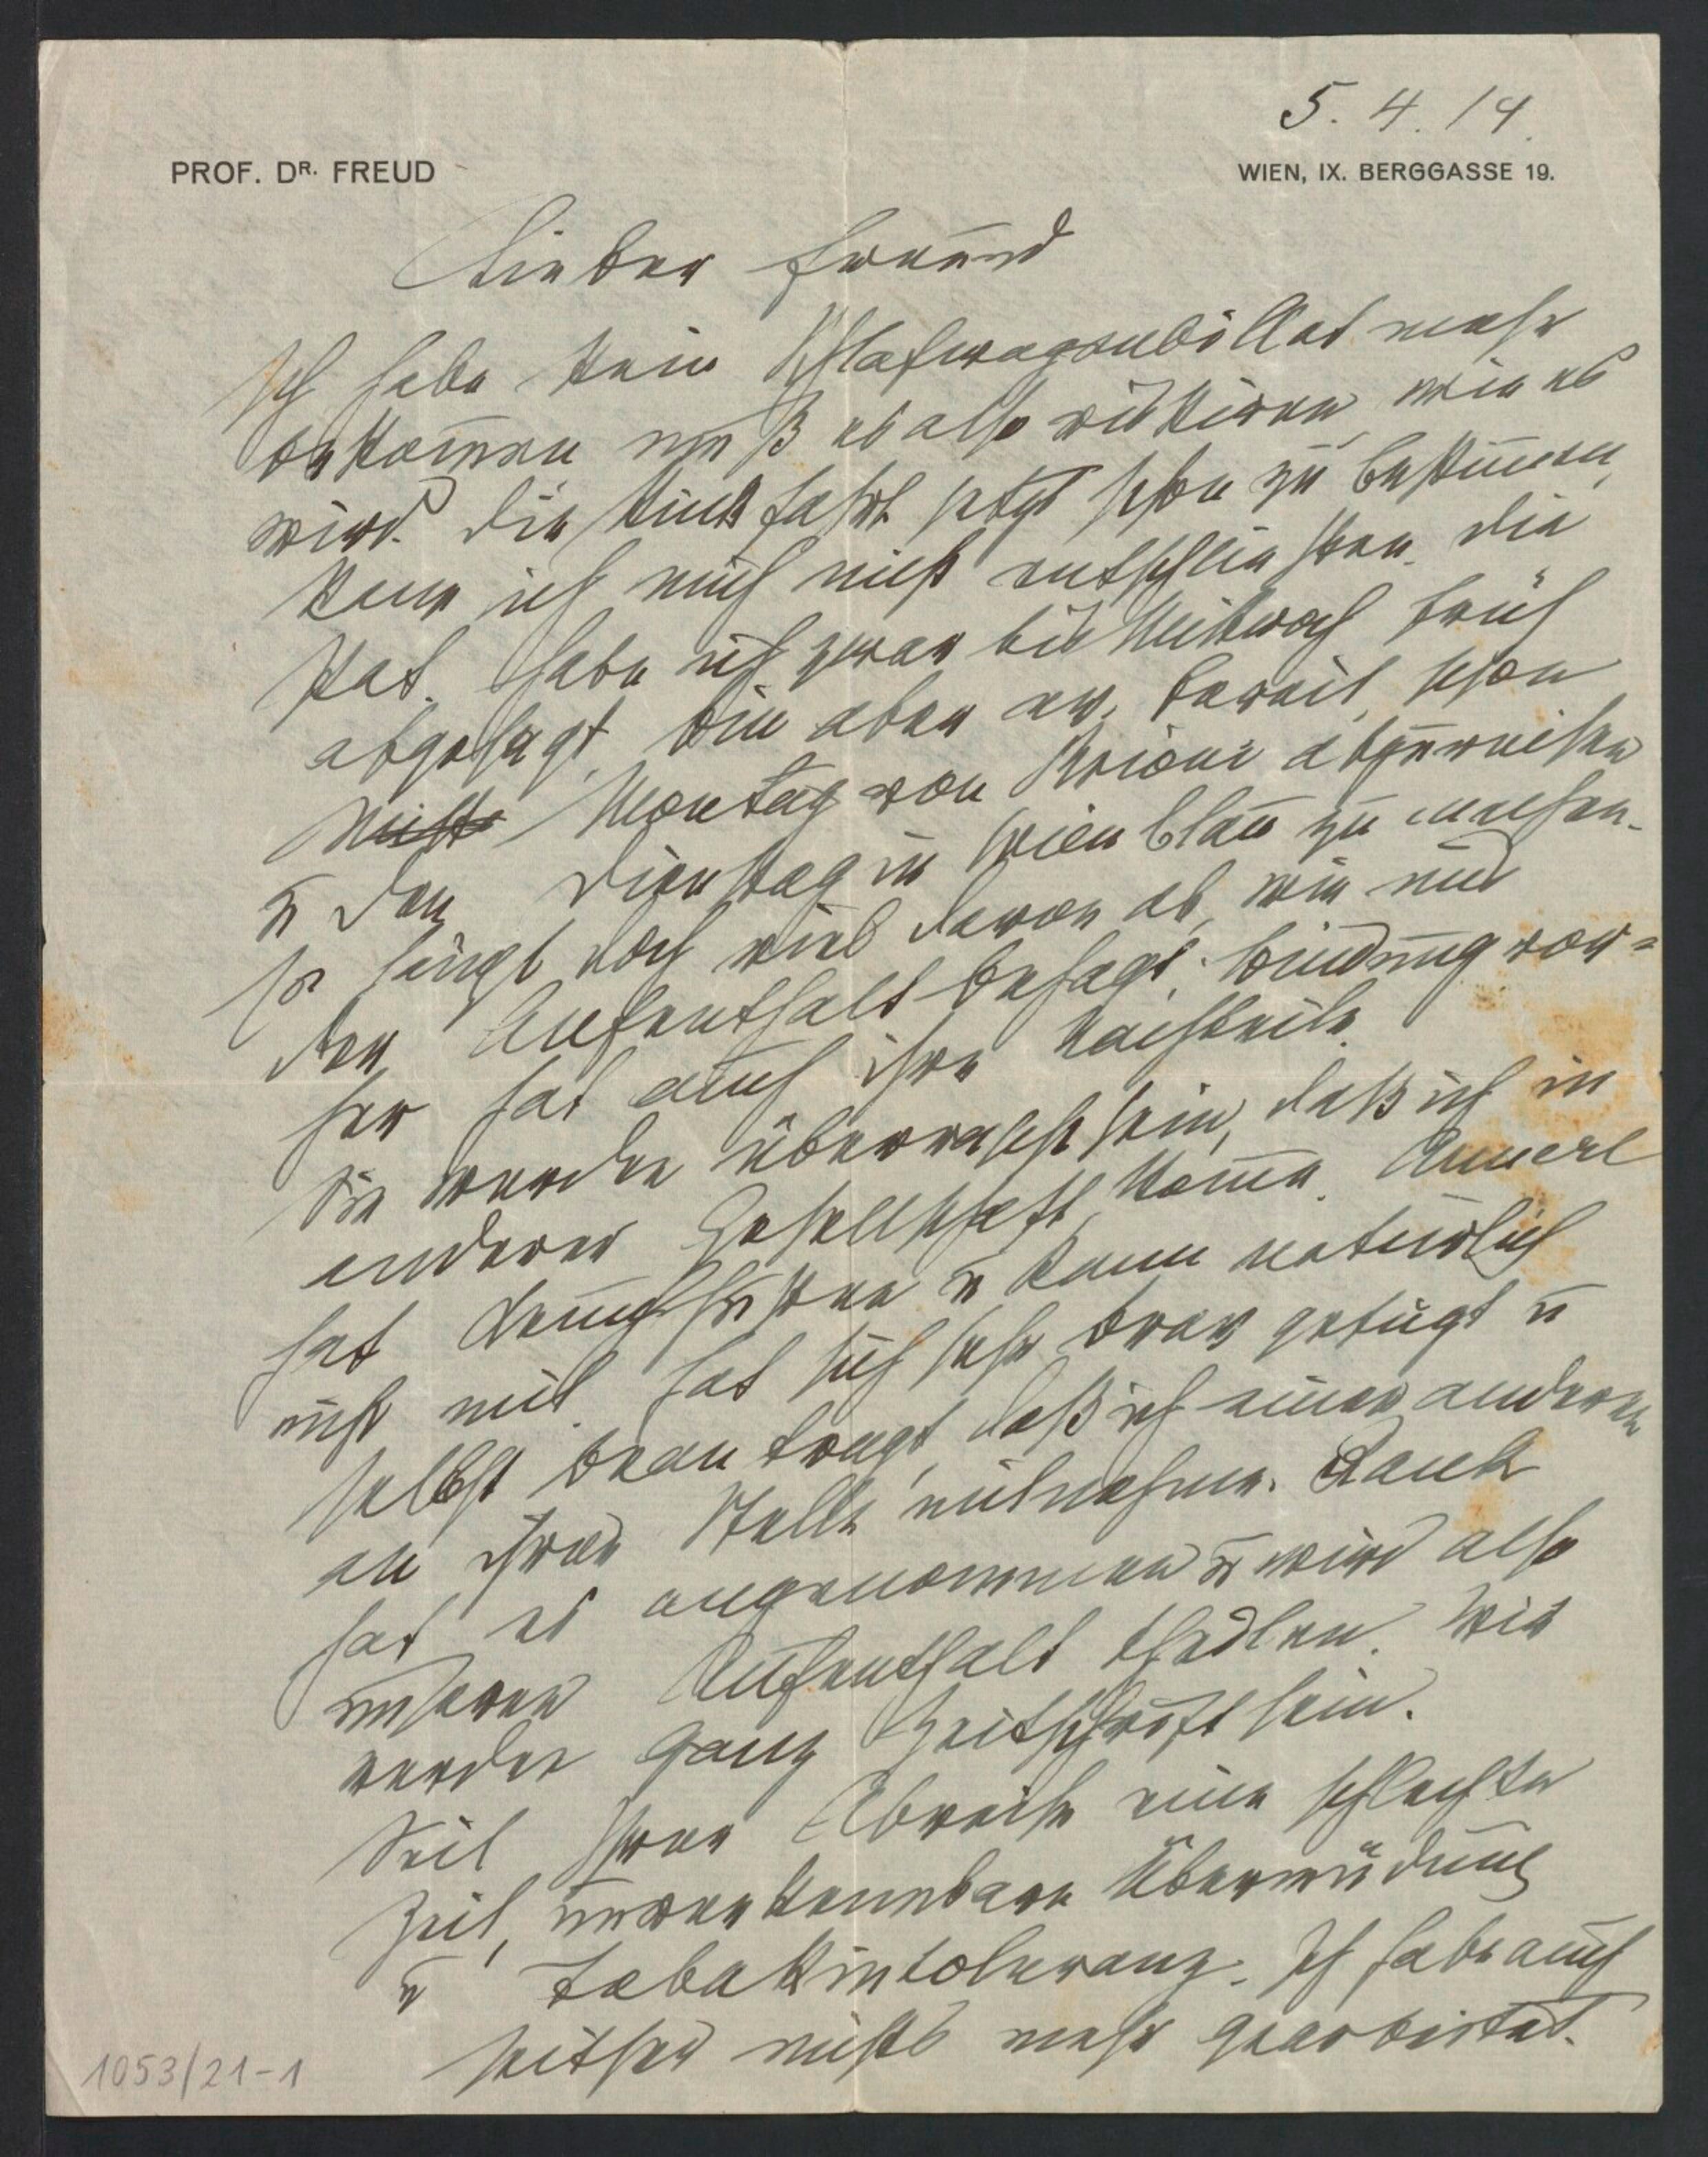 5. 4. 14.
PROF. DR. FREUD
WIEN, IX. BERGGASSE 19.
Lieber Freund
Ich habe kein Schlafwagenbillet mehr
bekommen muß es also riskiren, wie es
wird. Die Rückfahrt jetzt schon zu bestimmen,
kann ich mich nicht entschließen. Die
Pat. habe ich zwar bis Mittwoch früh
abgesagt, bin aber ev. bereit, schon
Montag von Brioni abzureisen
u den Dienstag in Wien blau zu machen.
Es hängt doch viel davon ab, wie uns
der Aufenthalt behagt; Bindung vor-
her hat auch ihre Nachteile.
Sie werden überrascht sein, daß ich in
anderer Gesellschaft komme. Annerl
hat Keuchhusten u kann natürlich
nicht mit, hat sich sehr brav gefügt u
selbst beantragt, daß ich einen anderen
an ihrer Stelle mitnehme. Rank
hat es angenommen u wird also
unseren Aufenthalt theilen. Wir
werden ganz Zeitschrift sein.
Seit Ihrer Abreise eine schlechte
Zeit, unverkennbare Übermüdung
u Tabakintoleranz. Ich habe auch
seither nichts mehr gearbeitet.
1053/21-1